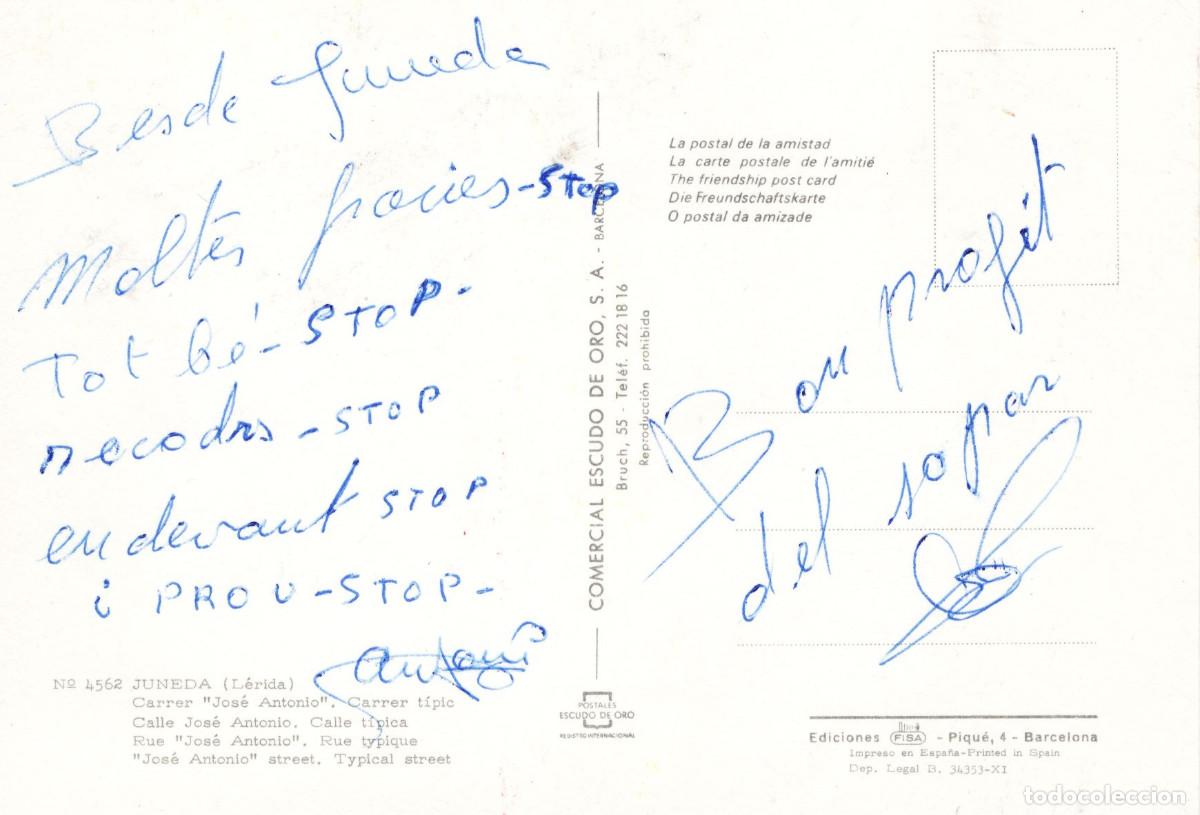 Besde Juneda
Moltes gracies - STOP
Tot bé - STOP -
recodrs - STOP
en devant STOP
i PROU - STOP -
Antoni
Nº 4562 JUNEDA (Lérida)
Carrer "José Antonio". Carrer típic
Calle José Antonio. Calle típica
Rue "José Antonio". Rue typique
"José Antonio" street. Typical street
COMERCIAL ESCUDO DE ORO, S. A. - BARCELONA
Bruch, 55 - Teléf. 222 18 16
Reproducción prohibida
POSTALES
ESCUDO DE ORO
REGISTRO INTERNACIONAL
La postal de la amistad
La carte postale de l'amitié
The friendship post card
Die Freundschaftskarte
O postal da amizade
Bon profit
del sopar
Ediciones FISA - Piqué, 4 - Barcelona
Impreso en España-Printed in Spain
Dep. Legal B. 34353-XI
todocoleccion